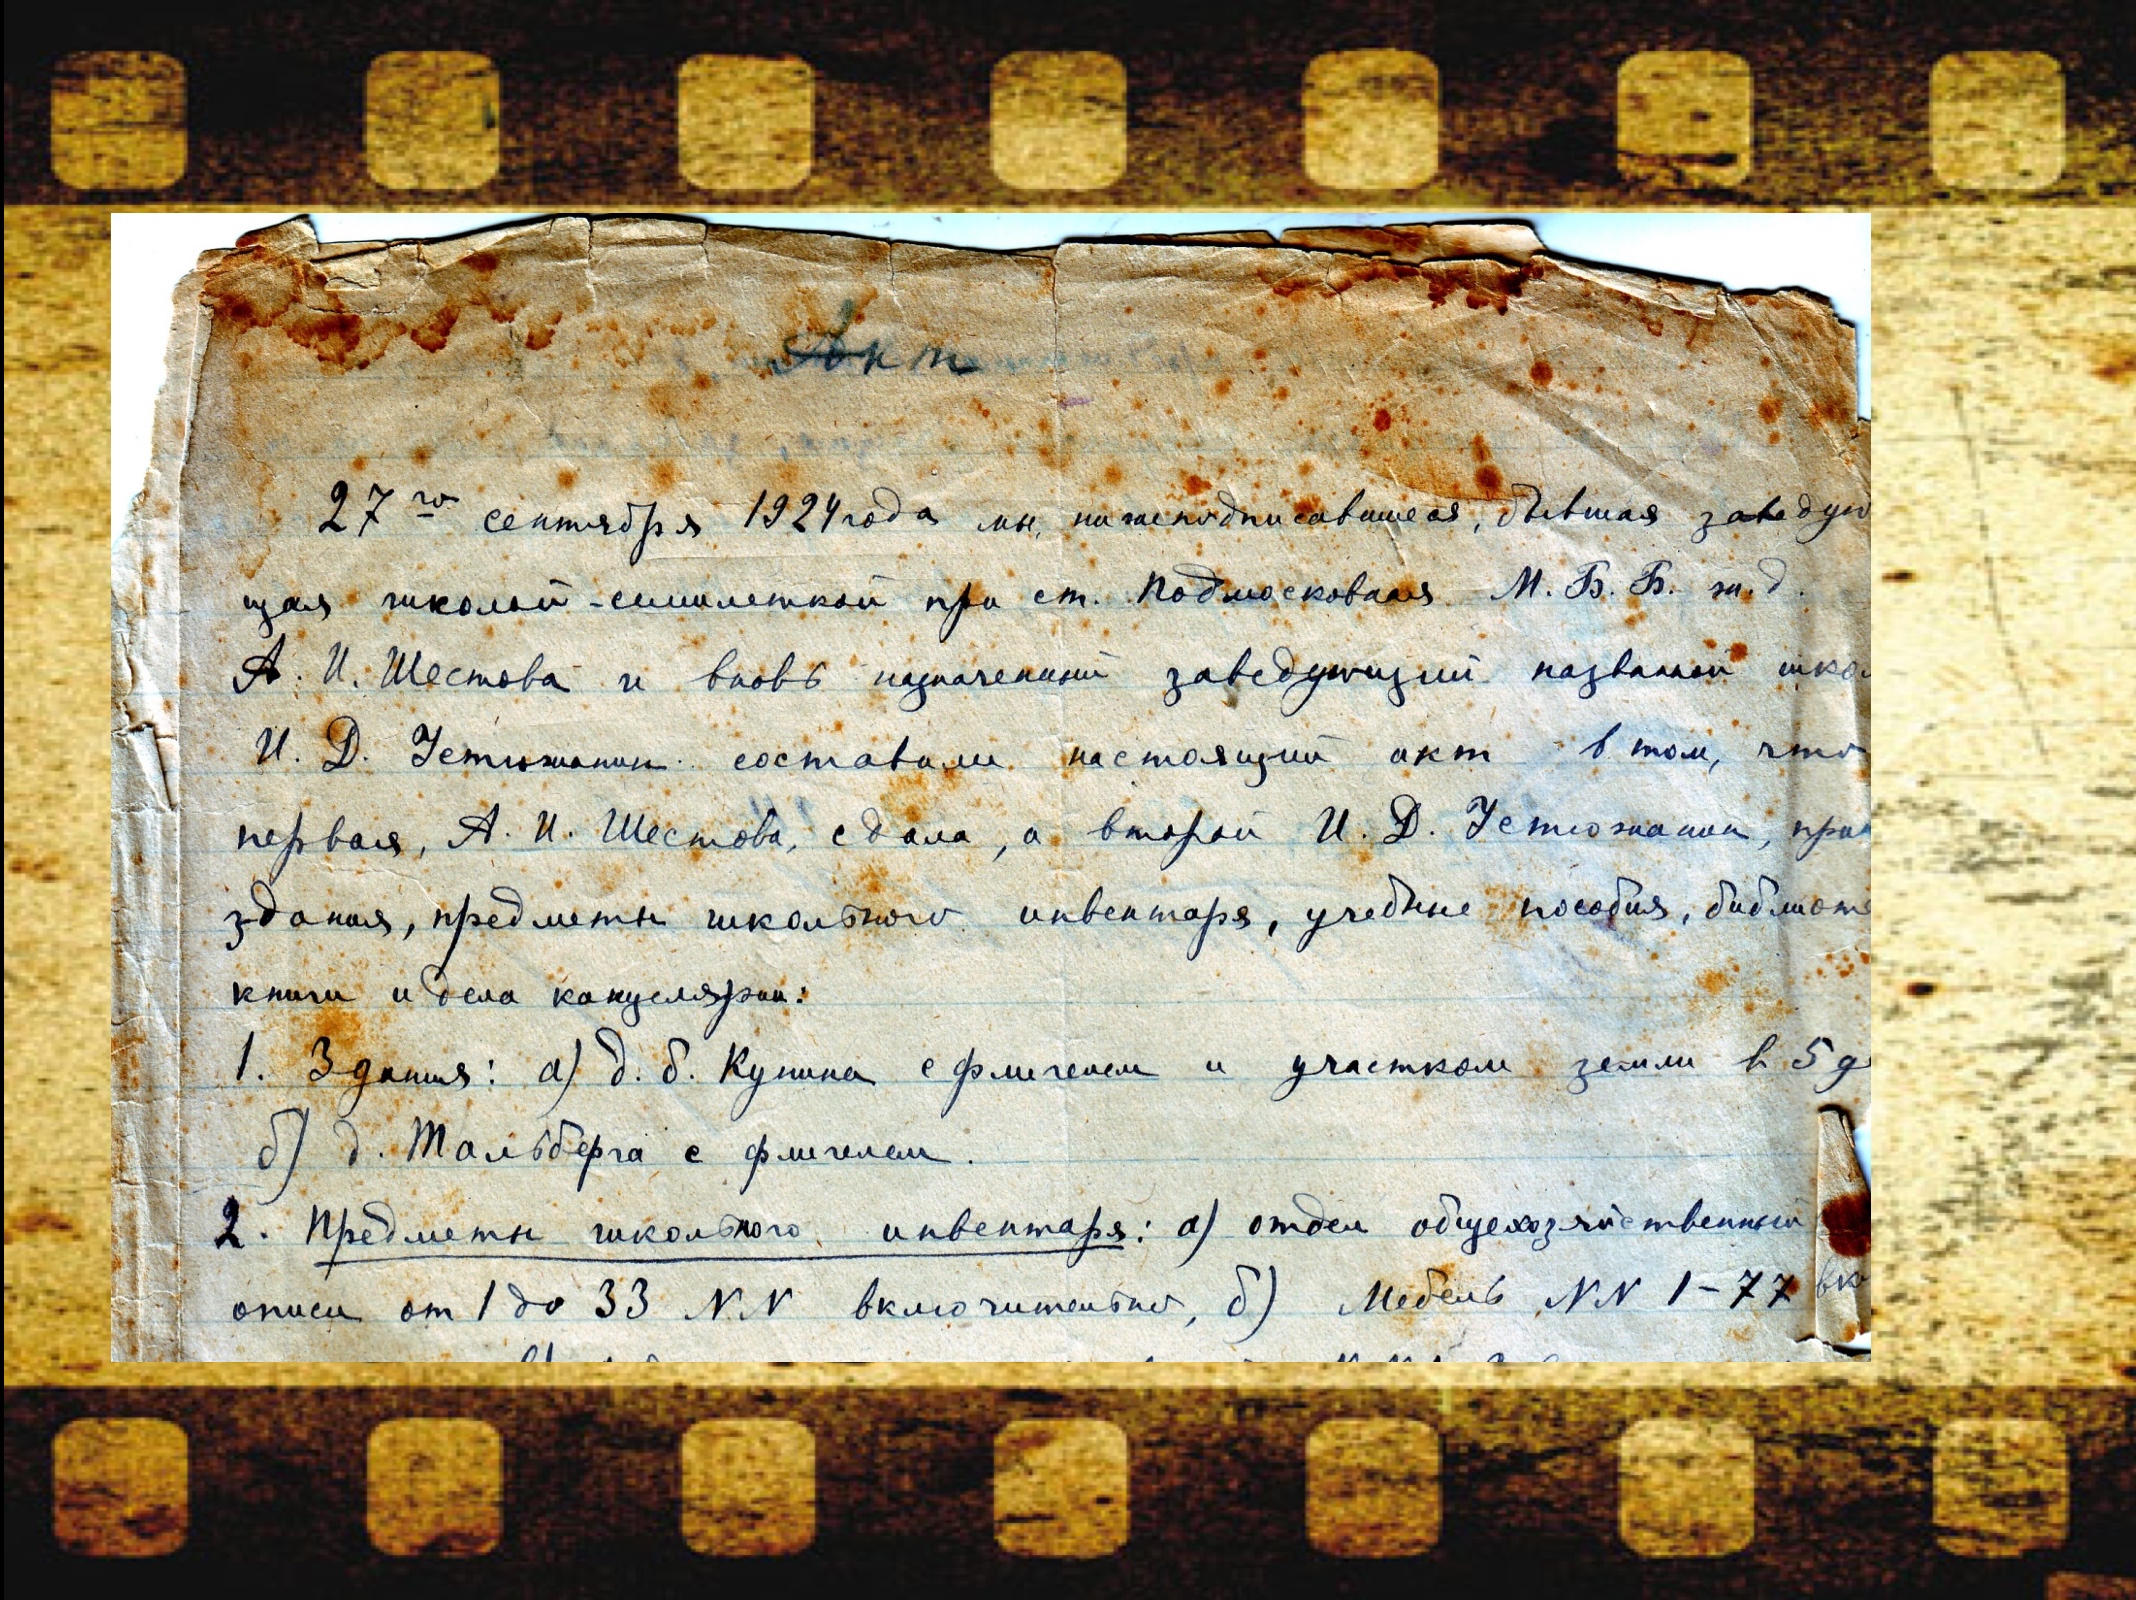 Акт
27го сентября 1924 года мы, нижеподписавшиеся, бывшая заведую
щая школой-семилеткой при ст. Подмосковная М. Б. Б. ж. д.
А. И. Шестова и вновь назначенный заведующий названной шко
И. Д. Устюжанин составили настоящий акт в том, что
первая, А. И. Шестова, сдала, а второй И. Д. Устюжанин, при
здания, предметы школьного инвентаря, учебные пособия, библиоте
книги и дела канцелярии:
1. Здания: а) д. б. Кунина с флигелем и участком земли в 5 д
б) д. Тальберга с флигелем.
2. Предметы школьного инвентаря: а) отдел общехозяйственный
описи от 1 до 33 NN включительно, б) Мебель NN 1-77 вк